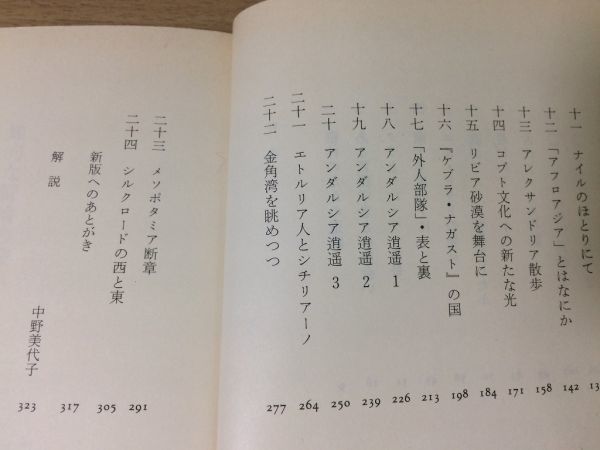 十一 ナイルのほとりにて
十二 「アフロアジア」とはなにか 142
十三 アレクサンドリア散歩 158
十四 コプト文化への新たな光 171
十五 リビア砂漠を舞台に 184
十六 『ケブラ・ナガスト』の国 198
十七 「外人部隊」・表と裏 213
十八 アンダルシア逍遥 1 226
十九 アンダルシア逍遥 2 239
二十 アンダルシア逍遥 3 250
二十一 エトルリア人とシチリアーノ 264
二十二 金角湾を眺めつつ 277
二十三 メソポタミア断章 291
二十四 シルクロードの西と東 305
新版へのあとがき 317
解説 中野美代子 323